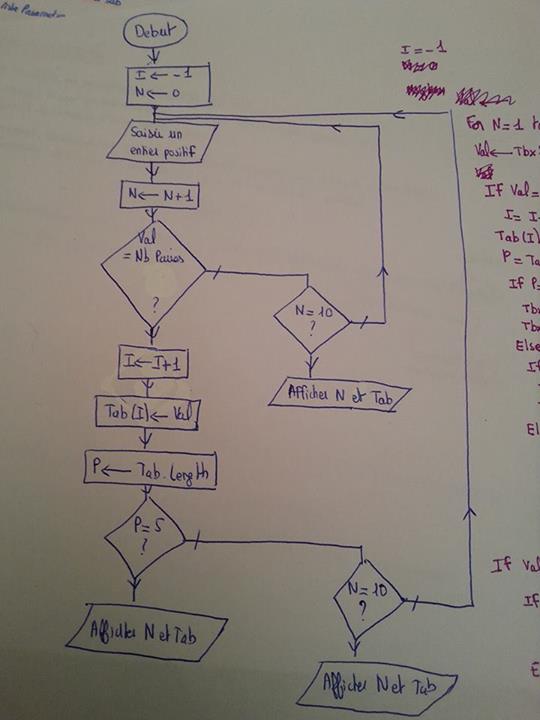 Debut
I ← -1
N ← 0
Saisir un
entier positif
N ← N+1
Val
= Nb Paires
?
N = 10
?
Afficher N et Tab
I ← I+1
Tab(I) ← Val
P ← Tab.Length
P = 5
?
Afficher N et Tab
N = 10
?
Afficher N et Tab
I = -1
For N = 1 to
Val ← Tbx
If Val =
I = I
Tab(I)
P = Ta
If P =
Tbx
Tbx
Else
If
El
If Val
If
E